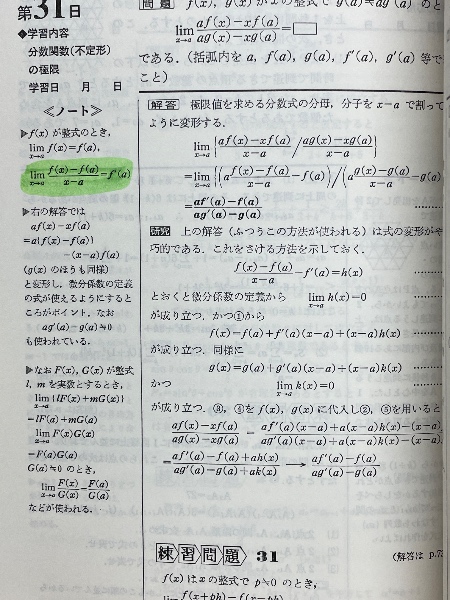 第31日
◆学習内容
分数関数(不定形)
の極限
学習日　月　日
≪ノート≫
▶f(x) が整式のとき,
lim_{x→a} f(x)=f(a),
lim_{x→a} (f(x)−f(a))/(x−a)=f′(a)
▶右の解答では
af(x)−xf(a)
=a{f(x)−f(a)}
−(x−a)f(a)
(g(x) のほうも同様)
と変形し, 微分係数の定義
の式が使えるようにすると
ころがポイント. なお
ag′(a)−g(a)≒0
も使われている.
▶なお F(x), G(x) が整式
l, m を実数とするとき,
lim_{x→a} {lF(x)+mG(x)}
=lF(a)+mG(a)
lim_{x→a} F(x)G(x)
=F(a)G(a)
G(a)≒0 のとき,
lim_{x→a} F(x)/G(x)=F(a)/G(a)
などが使われる.
問題 f(x), g(x) が x の整式で g(a)≒ag′(a) のと
lim_{x→a} (af(x)−xf(a))/(ag(x)−xg(a))=□
である. (括弧内を a, f(a), g(a), f′(a), g′(a) 等で
こと)
解答 極限値を求める分数式の分母, 分子を x−a で割って
ように変形する.
lim_{x→a} {(af(x)−xf(a))/(x−a) / (ag(x)−xg(a))/(x−a)}
=lim_{x→a} {(a(f(x)−f(a))/(x−a)−f(a)) / (a(g(x)−g(a))/(x−a)−g(a)
=(af′(a)−f(a))/(ag′(a)−g(a))
研究 上の解答 (ふつうこの方法が使われる) は式の変形がや
巧的である. これをさける方法を示しておく.
(f(x)−f(a))/(x−a)−f′(a)=h(x) ………
とおくと微分係数の定義から lim_{x→a} h(x)=0 ………
が成り立つ. かつ①から
f(x)=f(a)+f′(a)(x−a)+(x−a)h(x) ………
が成り立つ. 同様に
g(x)=g(a)+g′(a)(x−a)+(x−a)k(x) ………
かつ lim_{x→a} k(x)=0 ………
が成り立つ. ③, ④を f(x), g(x) に代入し②, ⑤を用いると
(af(x)−xf(a))/(ag(x)−xg(a)) = (af′(a)(x−a)+a(x−a)h(x)−(x−a)/(ag′(a)(x−a)+a(x−a)k(x)−(x−a)
=(af′(a)−f(a)+ah(x))/(ag′(a)−g(a)+ak(x)) → (af′(a)−f(a))/(ag′(a)−g(a))
練習問題 31 (解答は p.73
f(x) は x の整式で p≒0 のとき,
lim f(x+ph)−f(x−ph)